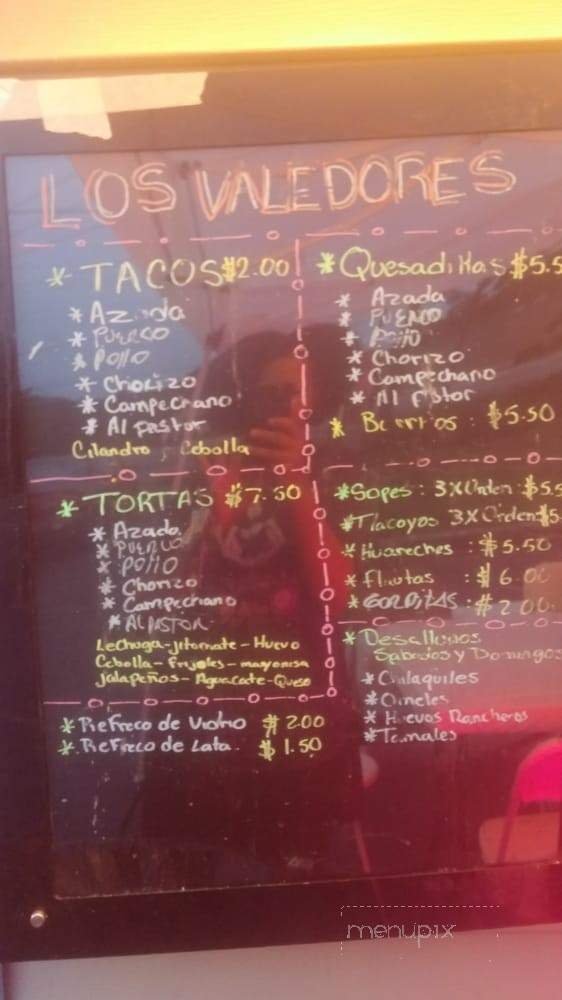 LOS VALEDORES
* TACOS $2.00
* Azada
* PUERCO
* POllO
* Chorizo
* Campechano
* Al PASTOR
Cilandro, Cebolla
* TORTAS $7.50
* Azada
* PUERCO
* POllO
* Chorizo
* Campechano
* Al PASTOR
Lechuga-jitomate-Huevo
Cebolla-Frijoles-mayonesa
Jalapeños-Aguacate-Queso
* Refreco de Vidrio $ 2.00
* Refreco de Lata. $ 1.50
* Quesadillas $5.5
* Azada
* PUERCO
* POllO
* Chorizo
* Campechano
* Al PAstor
* Burritos: $5.50
* Sopes: 3XOrden: $5.5
* Tlacoyos 3XOrden $5.
* Huaraches: $5.50
* Flautas : $6.00
* GORDITAS: $2.00
* Desallunos
Sabados y Domingos
* Chilaquiles
* Omelet
* Huevos Rancheros
* Tamales
menupix